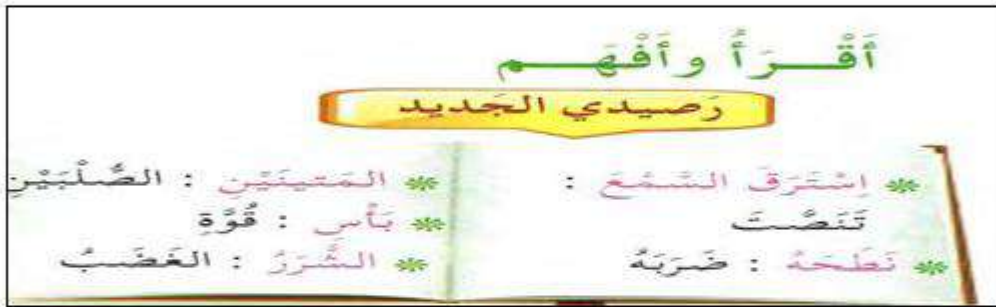 أَقْـــرَأُ وأَفْهَـــم
رَصيدي الجَديد
* اِسْتَرَقَ السَّمْعَ :
تَنَصَّتَ
* نَطَحَهُ : ضَرَبَهُ
* المَتينَيْنِ : الصُّلْبَيْنِ
* بَأْسِ : قُوَّةِ
* الشَّرَرُ : الغَضَبُ